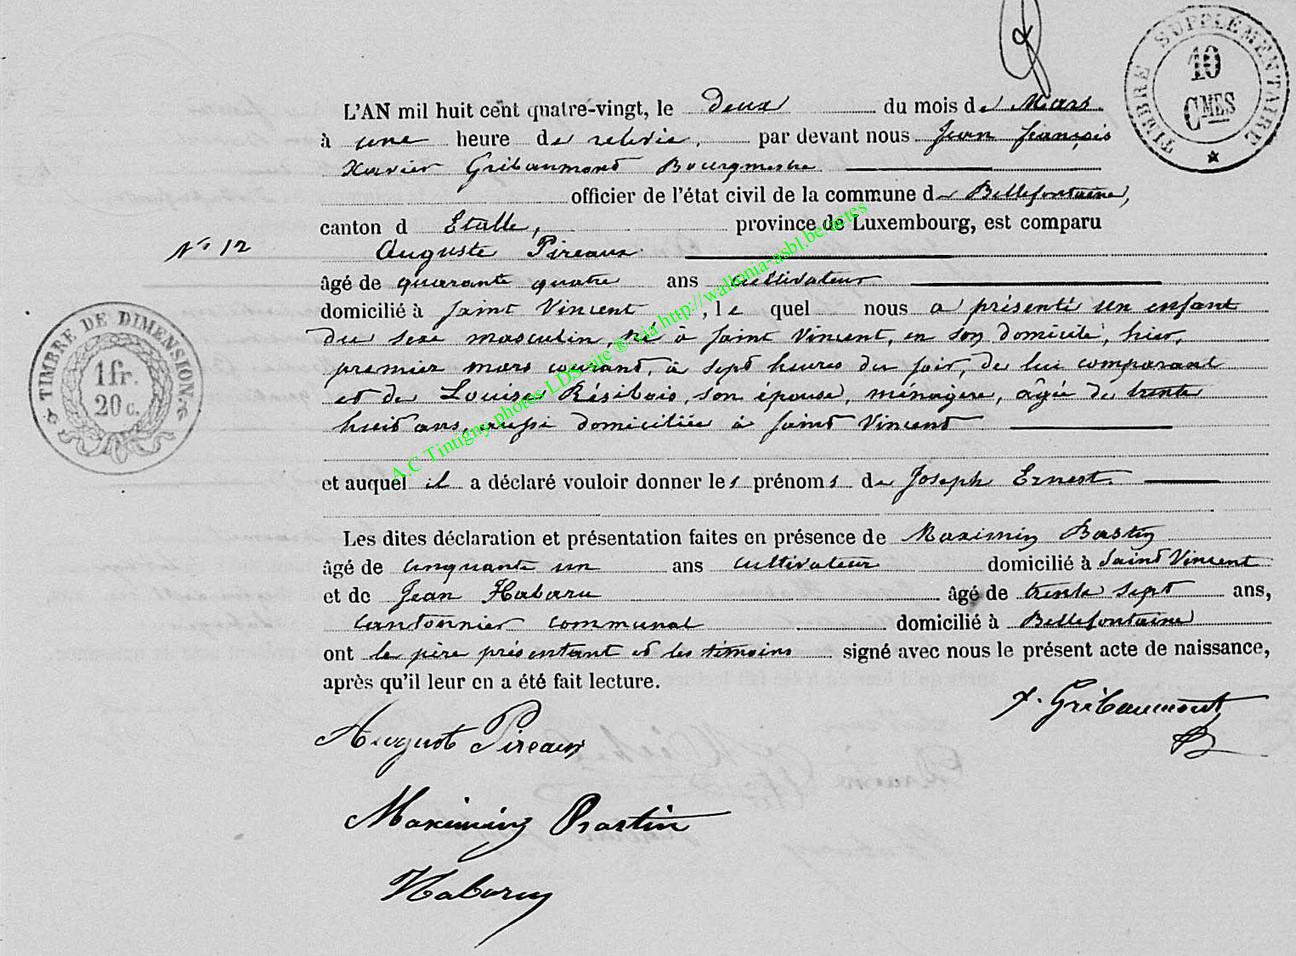 TIMBRE SUPPLÉMENTAIRE
10
CMES
L'AN mil huit cent quatre-vingt, le deux du mois de Mars
à une heure de relevée, par devant nous Jean François
Xavier Gribaumont Bourgmestre
officier de l'état civil de la commune de Bellefontaine,
canton d Etalle, province de Luxembourg, est comparu
N° 12
Auguste Pireaux
âgé de quarante quatre ans cultivateur
domicilié à Saint Vincent, le quel nous a présenté un enfant
du sexe masculin, né à Saint Vincent, en son domicile, hier,
premier mars courant, à sept heures du soir, de lui comparant
et de Louise Résibois, son épouse, ménagère, âgée de trente
huit ans, aussi domiciliée à Saint Vincent
TIMBRE DE DIMENSION.
1 fr.
20 c.
et auquel il a déclaré vouloir donner les prénoms de Joseph Ernest.
Les dites déclaration et présentation faites en présence de Maximin Bastin
âgé de cinquante un ans cultivateur domicilié à Saint Vincent
et de Jean Habaru âgé de trente sept ans,
cantonnier communal domicilié à Bellefontaine
ont le père présentant et les témoins signé avec nous le présent acte de naissance,
après qu'il leur en a été fait lecture.
X. Gribaumont
August Pireaux
Maximin Bastin
Habaru
A.C Tintigny photos LDS site ® via http://wallonia-asbl.be/tetes